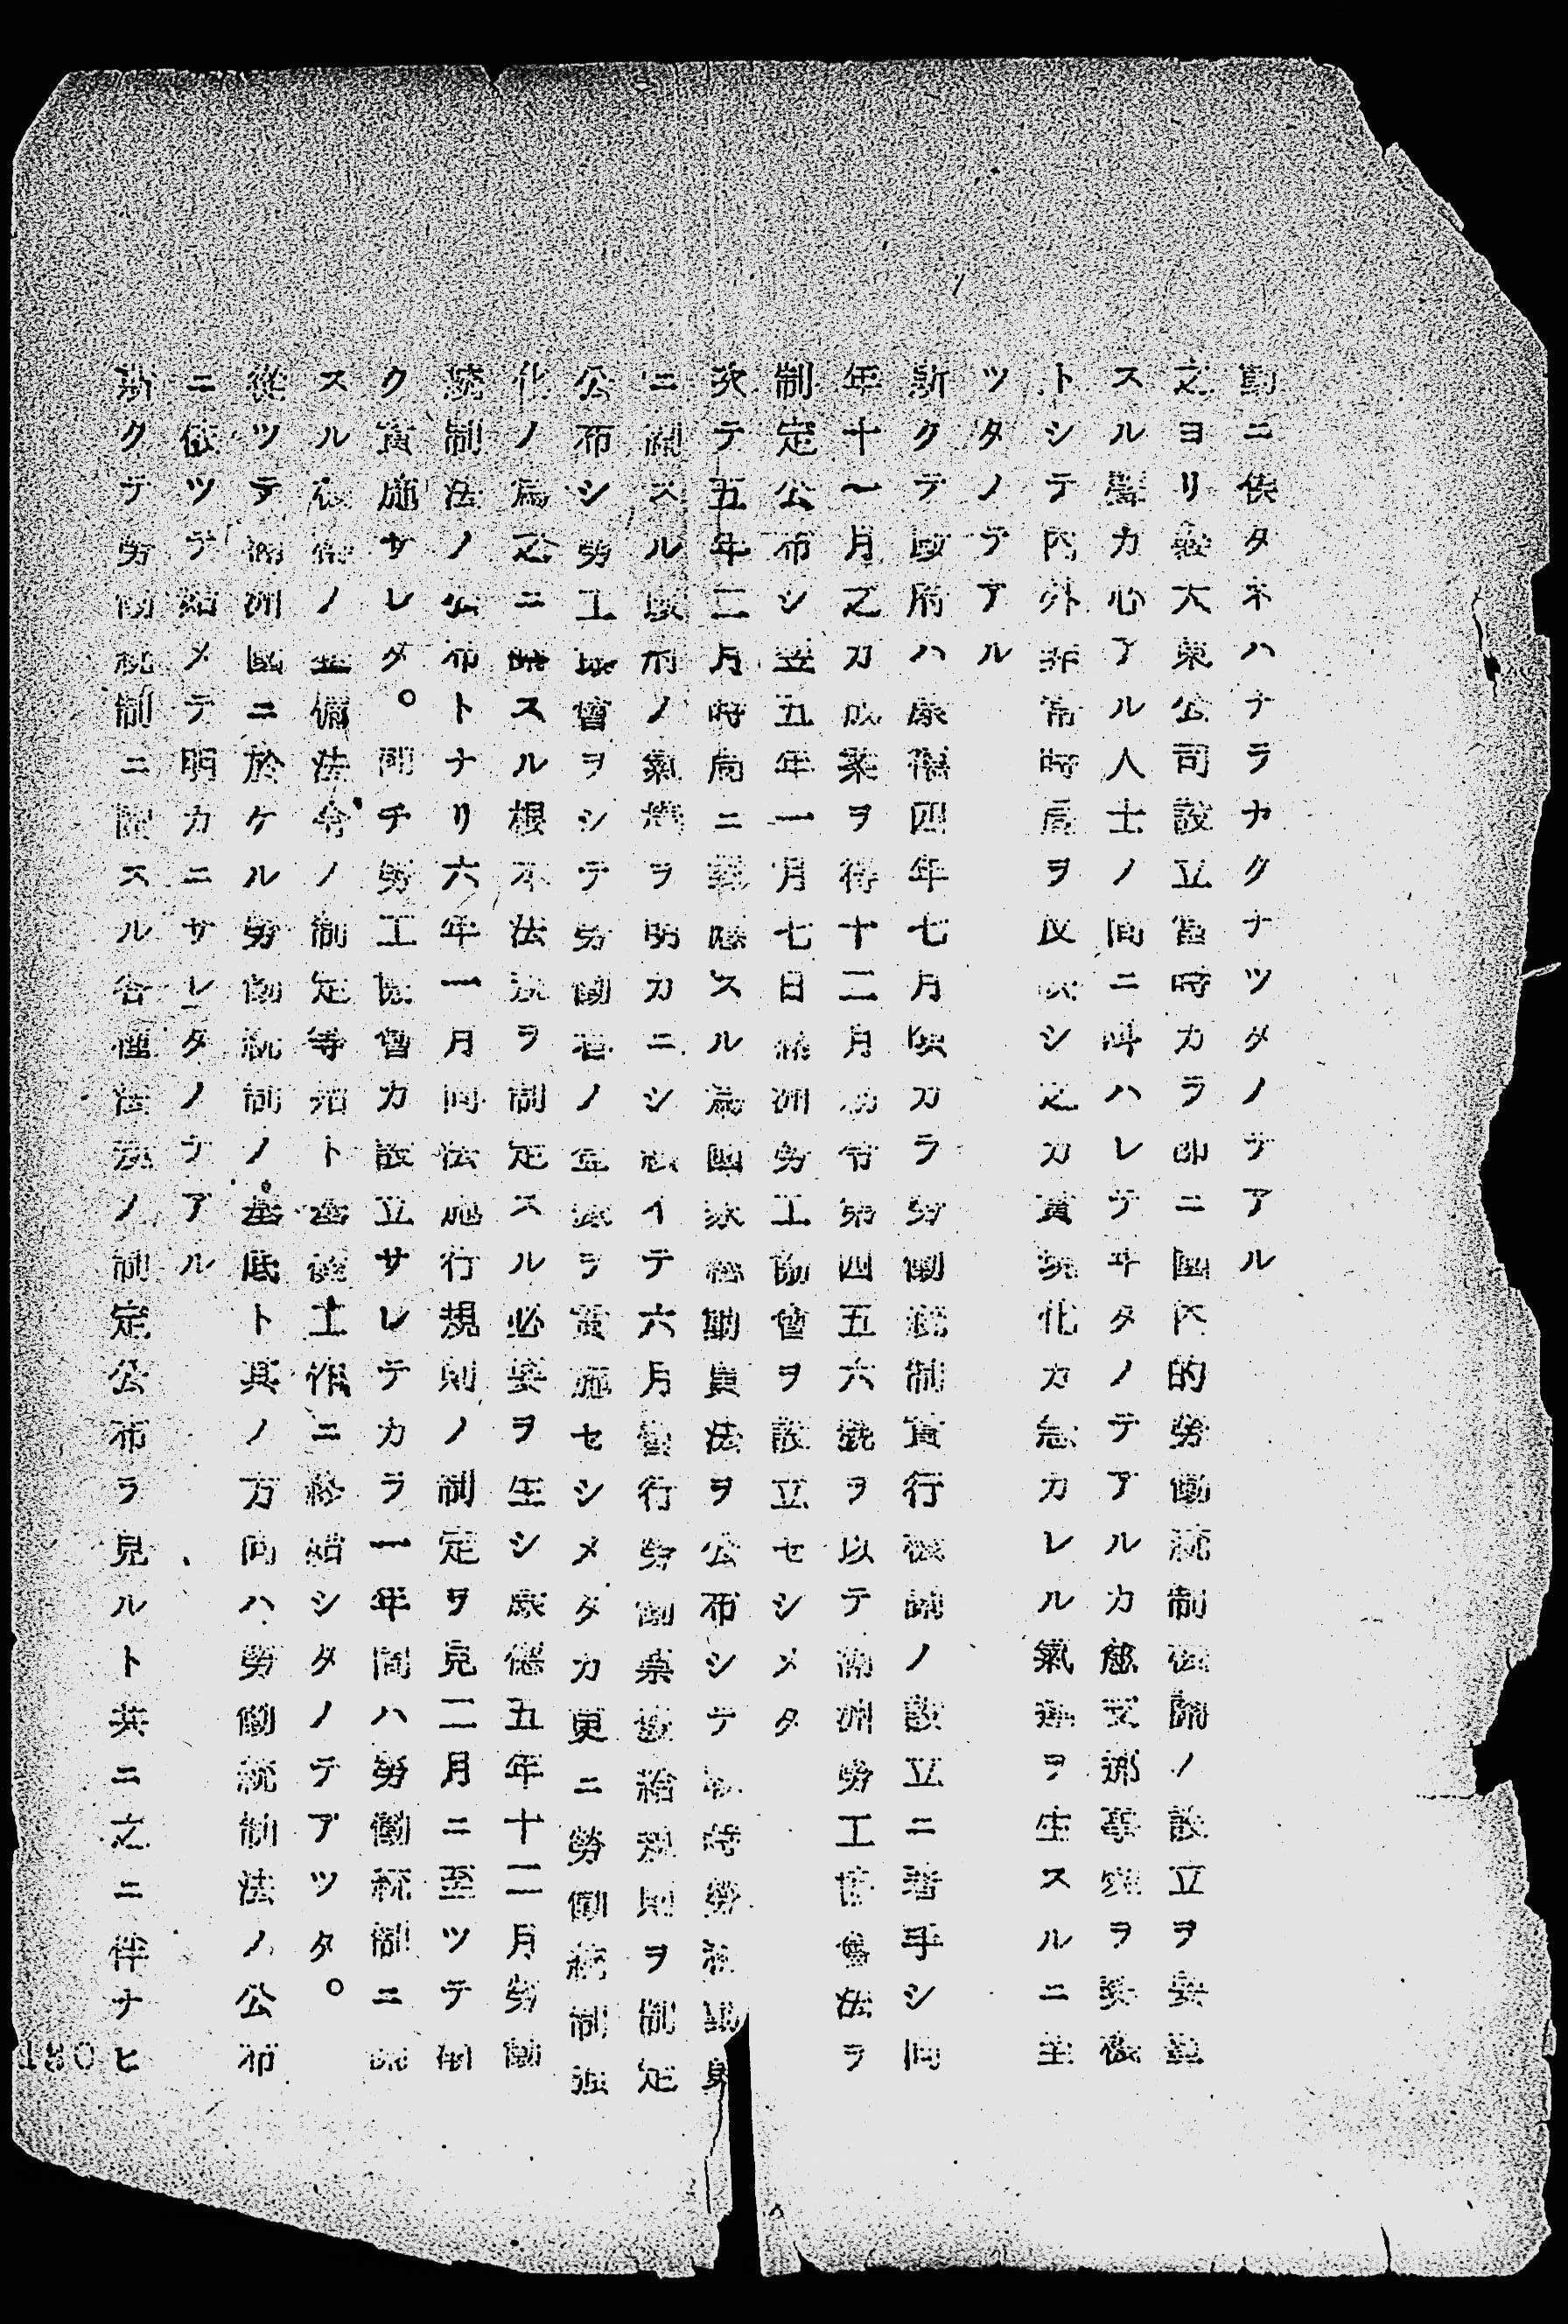 動ニ俟タネハナラナクナツタメノテアル
之ヨリ大東公司設立當時カラ即ニ國内的勞働統制機關ノ設立ヲ要望
スル聲カ心アル人士ノ間ニ叫ハレテヰタノテアルカ支那事變ヲ契機
トシテ内外非常時局ヲ反映シ之カ實現化カ急カレル氣運ヲ生スルニ至
ツタノテアル
斯クテ政府ハ康德四年七月頃カラ勞働統制實行機關ノ設立ニ着手シ同
年十一月之カ成案ヲ得十二月勅令第四五六號ヲ以テ滿洲勞工協會法ヲ
制定公布シ翌五年一月七日滿洲勞工協會ヲ設立セシメタ
次テ五年二月時局ニ對應スル爲國家總動員法ヲ公布シテ戰時勞務動員
ニ關スル政府ノ氣構ヲ明カニシ次イテ六月暫行勞働票發給規則ヲ制定
公布シ勞工協會ヲシテ勞働者ノ登錄ヲ實施セシメタカ更ニ勞働統制強
化ノ爲之ニ關スル根本法規ヲ制定スル必要ヲ生シ康德五年十二月勞働
統制法ノ公布トナリ六年一月同法施行規則ノ制定ヲ見二月ニ至ツテ
ク實施サレタ。即チ勞工協會カ設立サレテカラ一年間ハ勞働統制ニ關
スル機構ノ整備法令ノ制定等殆ト基礎工作ニ終始シタノテアツタ。
從ツテ滿洲國ニ於ケル勞働統制ノ基底ト其ノ方向ハ勞働統制法ノ公布
ニ依ツテ始メテ明カニサレタノテアル
斯クテ勞働統制ニ關スル各種法規ノ制定公布ヲ見ルト共ニ之ニ伴ナヒ
180